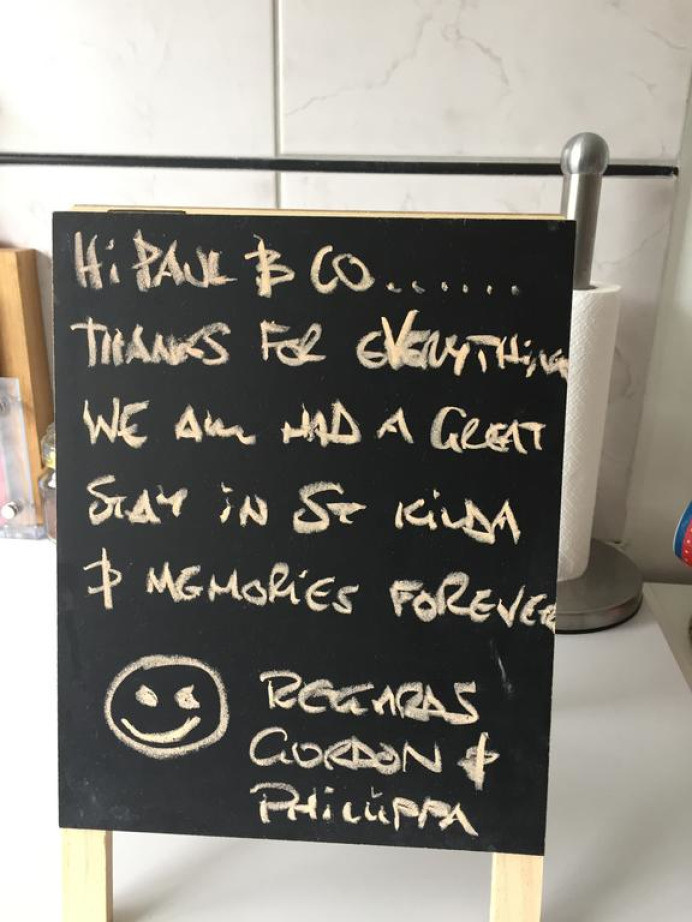 Hi PAUL & CO.......
THANKS FOR EVERYTHING
WE ALL HAD A GREAT
STAY iN ST KiLDA
& MEMORiES FOREVER
REGARDS
GORDON &
PHiLiPPA